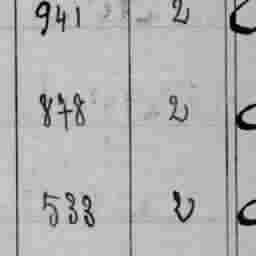 941 2
878 2
533 2